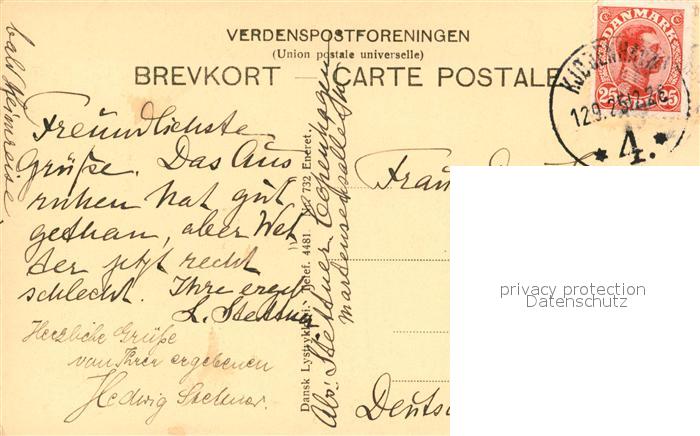 VERDENSPOSTFORENINGEN
(Union postale universelle)
BREVKORT — CARTE POSTALE
DANMARK
25 25
KJØBENHAVN
12.9.25
* 4. *
bald Heimreise
Freundlichste
Grüße. Das Aus
ruhen hat gut
gethan, aber Wet
ter jetzt recht
schlecht. Ihre ergeb
L. Stettner
Herzliche Grüße
von Ihrer ergebenen
Hedwig Stettner.
Dansk Lystrykkeri. Telef. 4481. No. 732 Eneret.
Abs: Stettner Copenhagen
Frau
Deutsc
privacy protection
Datenschutz